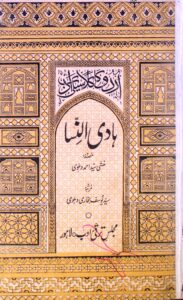 اردو کا کلاسیکی ادب
ہادی النسا
مصنفہ
منشی سید احمد دہلوی
مرتبہ
سید یوسف بخاری دہلوی
مجلس ترقی ادب، لاہور